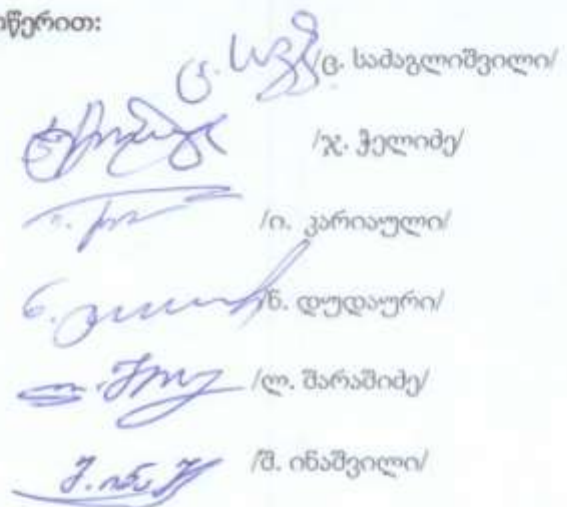 /ც. საძაგლიშვილი/
/ჯ. ჭელიძე/
/ი. კარიაული/
/ნ. დუდაური/
/ლ. შარაშიძე/
/შ. ინაშვილი/